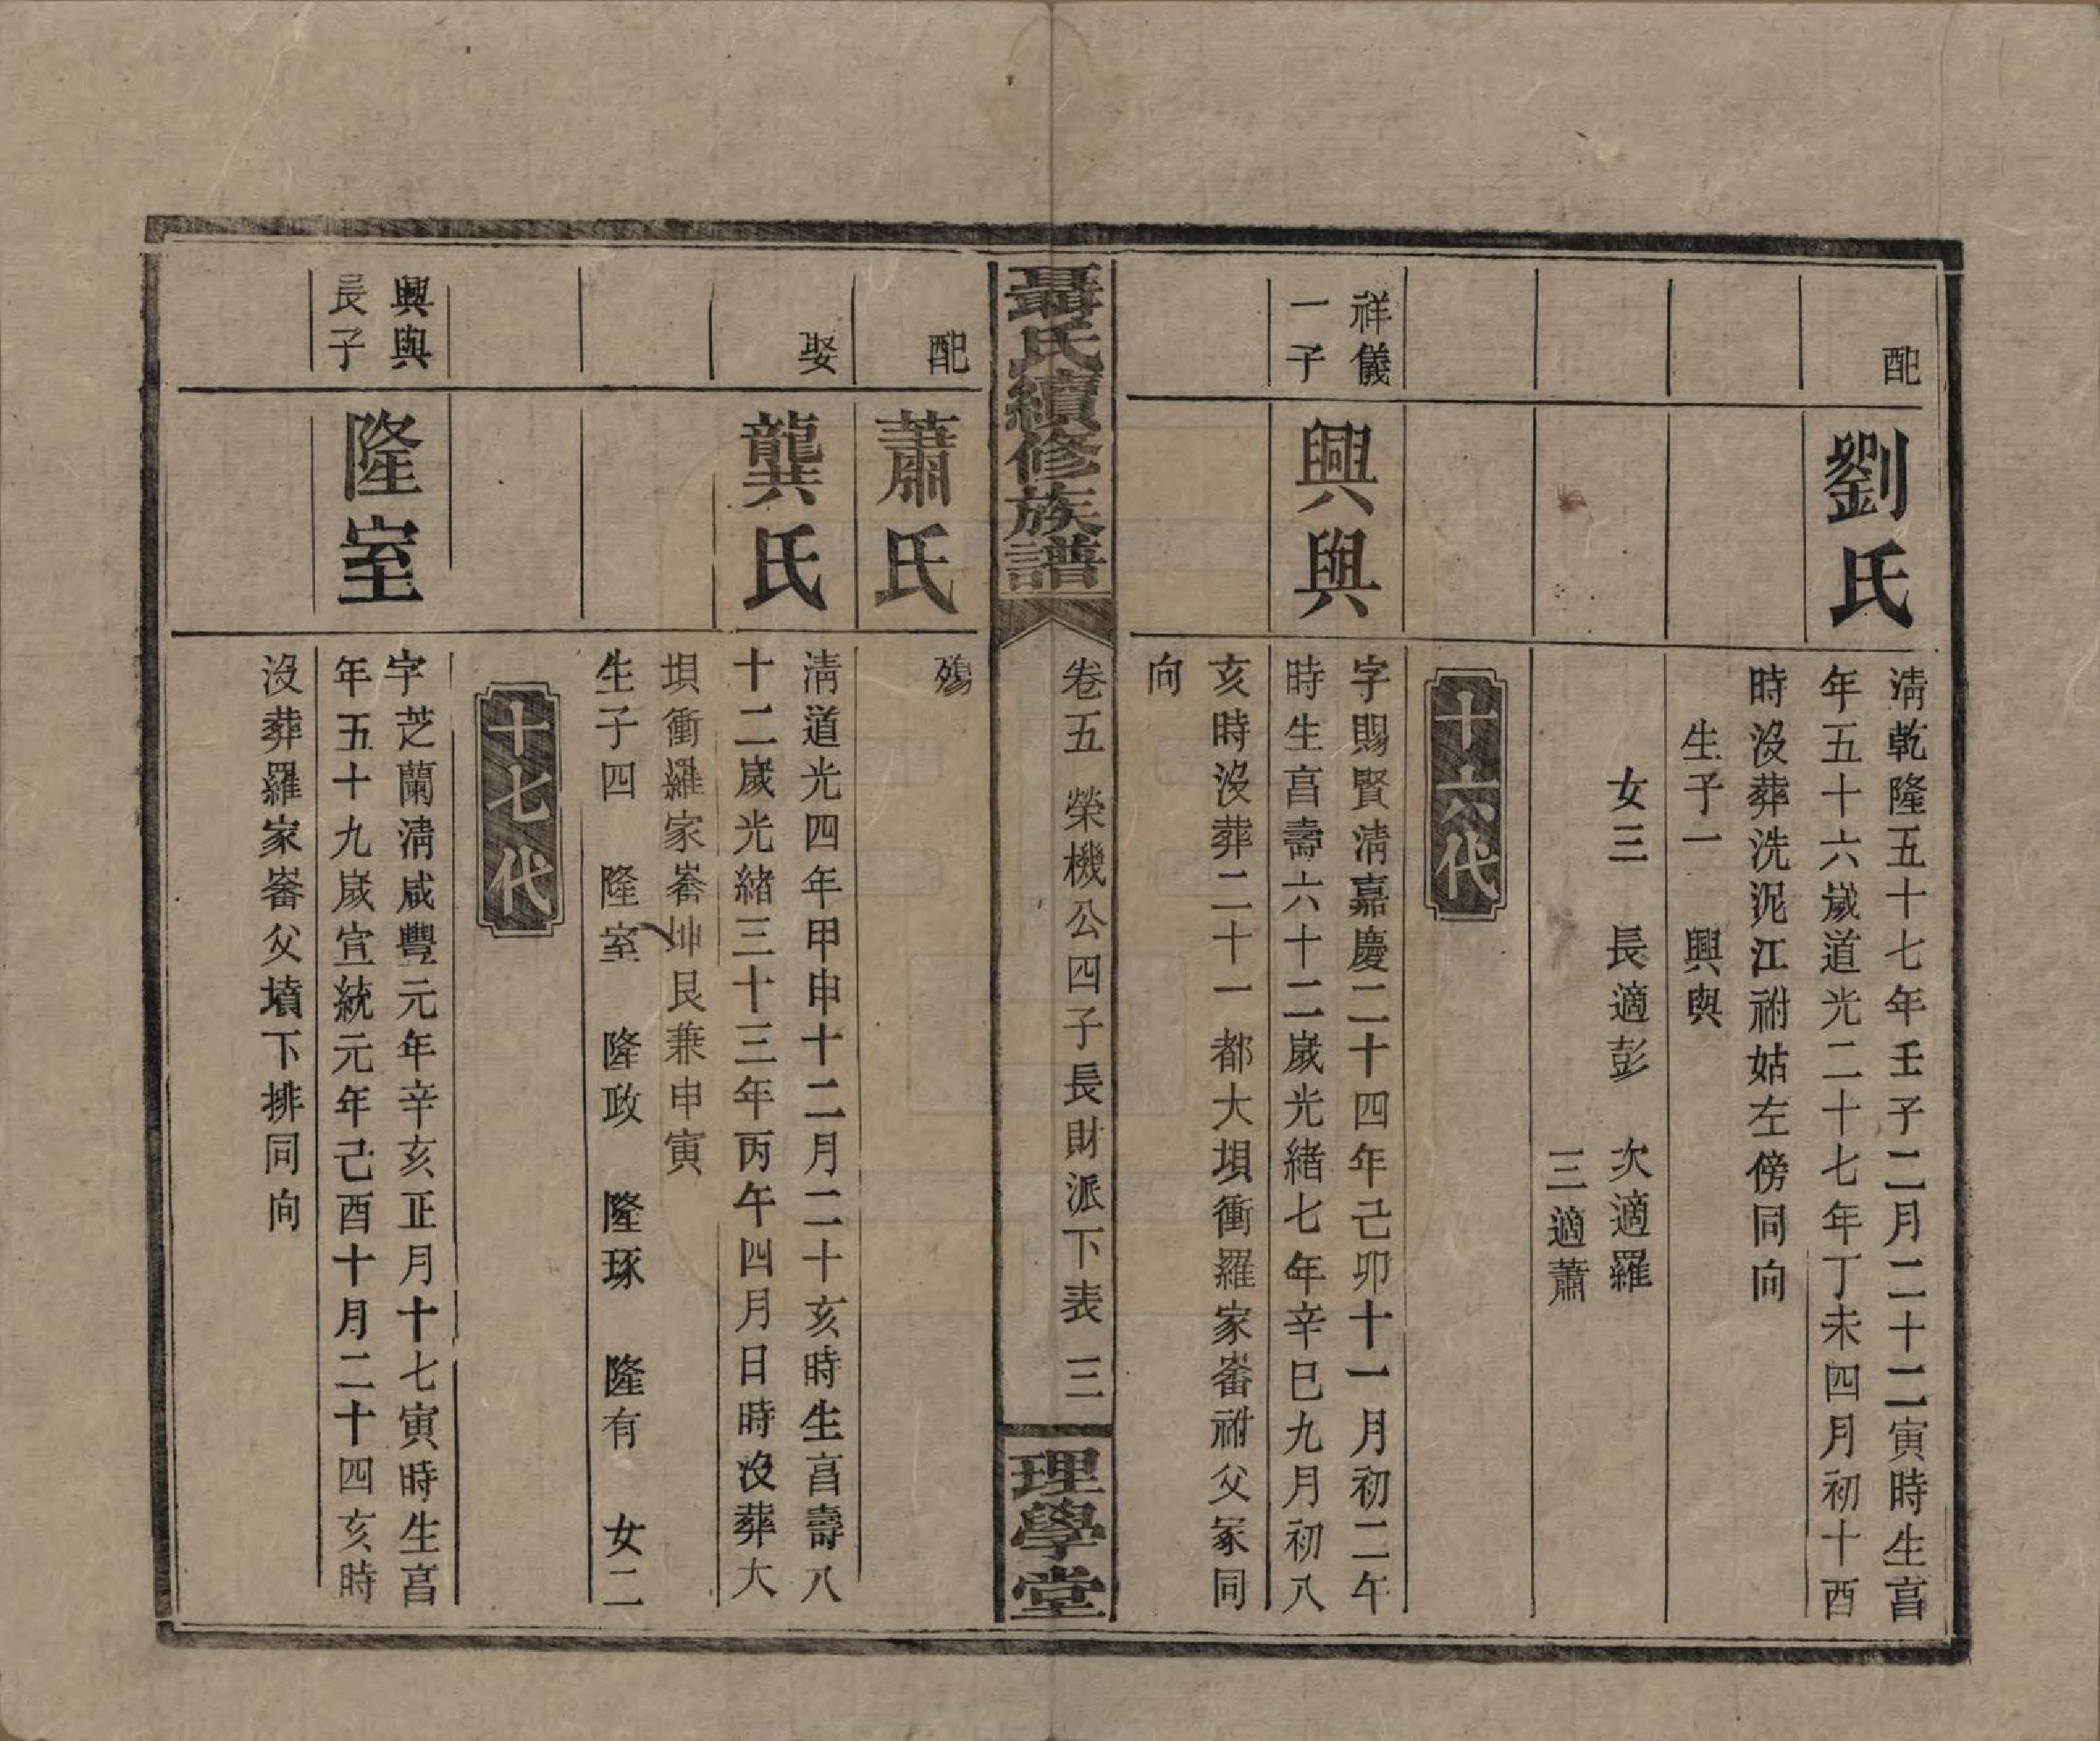 配
劉氏
淸乾隆五十七年壬子二月二十二寅時生亯
年五十六歲道光二十七年丁未四月初十酉
時沒葬洗泥江祔姑左傍同向
生子一　興與
女三　長適彭　次適羅
三適蕭
十六代
祥儀
一子
興與
字賜賢淸嘉慶二十四年己卯十一月初二午
時生亯壽六十二歲光緒七年辛巳九月初八
亥時沒葬二十一都大垻衝羅家崙祔父冢同
向
聶氏續修族譜
卷五　榮機公四子長財派下表　三
理學堂
配
蕭氏
殤
娶
龔氏
淸道光四年甲申十二月二十亥時生亯壽八
十二歲光緒三十三年丙午四月日時沒葬大
垻衝羅家崙坤艮兼申寅
生子四　隆室　隆政　隆琢　隆有　女二
十七代
興與
長子
隆室
字芝蘭淸咸豐元年辛亥正月十七寅時生亯
年五十九歲宣統元年己酉十月二十四亥時
沒葬羅家崙父墳下排同向